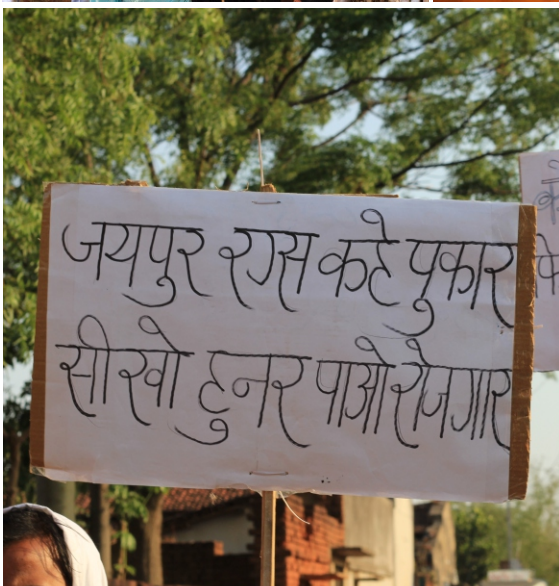 जयपुर रग्स कहे पुकार
सीखो हुनर पाओ रोजगार